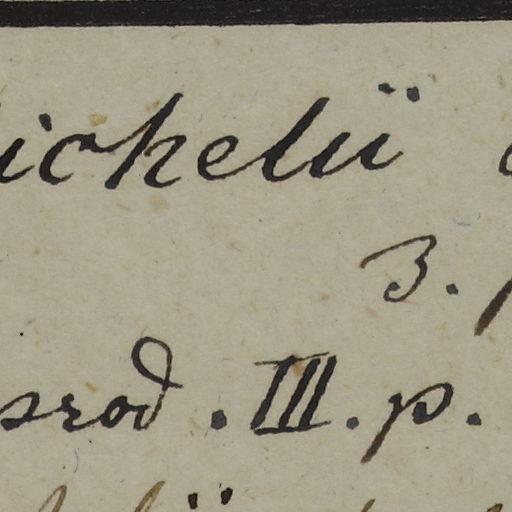 ichelii
3.
srod . III . p.